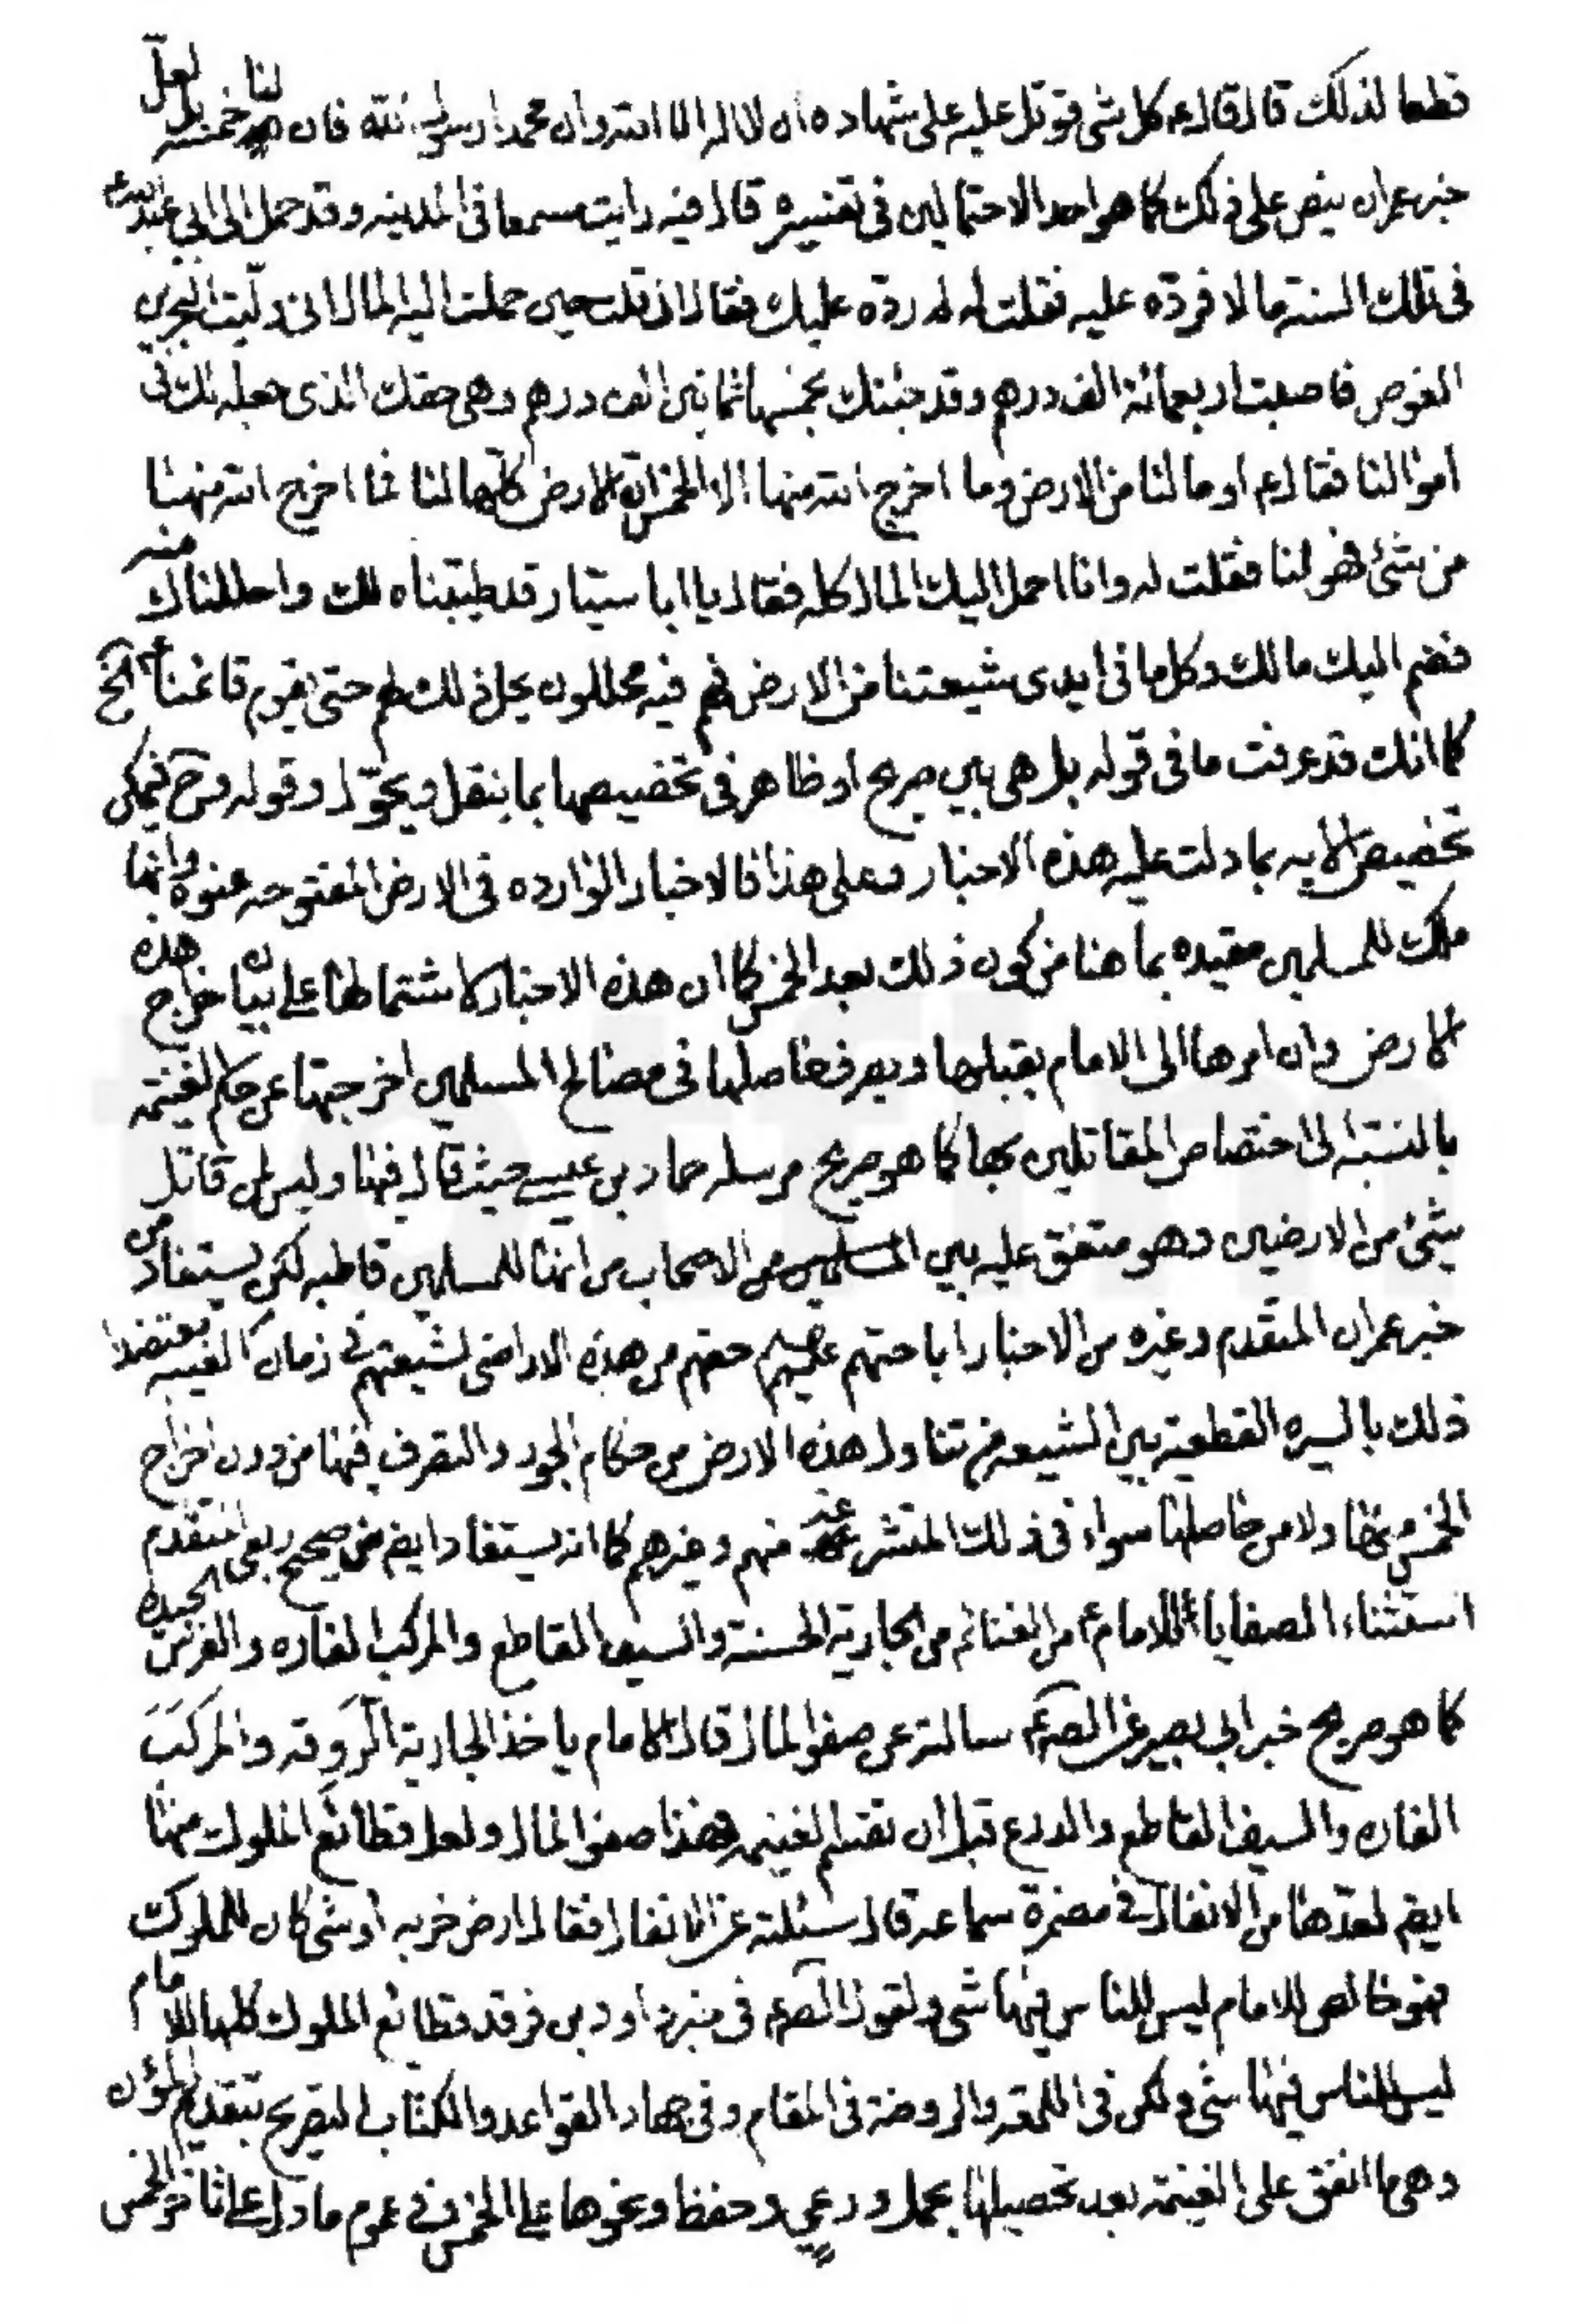 قطعا لذلك قال قال ع كل شى قوتل عليه على شهاده ان لا اله الا الله وان محمدا رسول الله فان لنا خمسه بل لعلّ
خبر عمران ينص على ذلك كما هو احد الاحتمالين فى تفسيره قال فيه رايت مسمعا فى المدينه وقد حمل الى ابي عبد الله ع
فى تلك السنة مالا فردّه عليه فقلت له لم ردّه عليك فقال انى قلت حين حملت اليه المال انى ولّيت البحرين
الغوص فاصبت اربعمائة الف درهم وقد جئتك بخمسها ثمانين الف درهم وهى حقك الذى جعله لك فى
اموالنا فقال ع اوما لنا من الارض وما اخرج الله منها الا الخمس ان الارض كلها لنا فما اخرج الله منها
من شئ فهو لنا فقلت له وانا احمل اليك المال كله فقال يا ابا سيار قد طيبناه لك واحللناك منه
فضم اليك مالك وكل ما فى ايدى شيعتنا من الارض فهم فيه محللون يحل ذلك لهم حتى يقوم قائمنا ع الخ
كما انك قد عرفت ما فى قوله بل هى بين صريح او ظاهر فى تخصيصها بما ينقل ويحوّل وقوله وح فيمكن
تخصيص الايه بما دلت عليه هذه الاخبار وعلى هذا فالاخبار الوارده فى الارض المفتوحه عنوه وانها
ملك للمسلمين مقيده بما هنا من كون ذلك بعد الخمس كما ان هذه الاخبار كاشتمالها على بيان خراج هذه
الارض وان امرها الى الامام يقبلها ويصرف حاصلها فى مصالح المسلمين اخرجتها عن حكم الغنيمه
بالنسبة الى اختصاص المقاتلين بها كما هو صريح مرسله حماد بن عيسى حيث قال فيها وليس لمن قاتل
شئ من الارضين وهو متفق عليه بين المسلمين من الاصحاب من انها للمسلمين قاطبه لكن يستفاد من
خبر عمران المتقدم وغيره من الاخبار اباحتهم عليهم حقهم من هذه الاراضى لشيعتهم فى زمان الغيبه معتضدا
ذلك بالسيره القطعية بين الشيعه من تناول هذه الارض من حكام الجور والتصرف فيها من دون اخراج
الخمس منها ولا من حاصلها سواء فى ذلك المتشرعه منهم وغيرهم كما انه يستفاد ايضم من صحيح ربعى المتقدم
استثناء الصفايا للامام ع من الغنائم من الجارية الحسنة والسيف القاطع والمركب الفاره والفرس الجيده
كما هو صريح خبر ابى بصير عن الصم ع سالته عن صفو المال قال الامام ياخذ الجارية الرَوقه والمركب
الفاره والسيف القاطع والدرع قبل ان تقسم الغنيمه فهذا صفو المال ولعل قطائع الملوك منها
ايضم لعدّها من الانفال فى مضمرة سماعه قال سئلته عن الانفال فقال ارض خربه او شى كان للملوك
فهو خالص للامام ليس للناس فيها شى ولقول الصم ع فى خبر داود بن فرقد قطايع الملوك كلها للامام
ليس للناس فيها شى ولكن فى اللمعه والروضة فى المقام وفى جهاد القواعد والكتاب التصريح بتقديم المؤن
وهى ما انفق على الغنيمه بعد تحصيلها بحمل ورعي وحفظ ونحوها على الخمس وفى عموم ما دل على انا نخمس